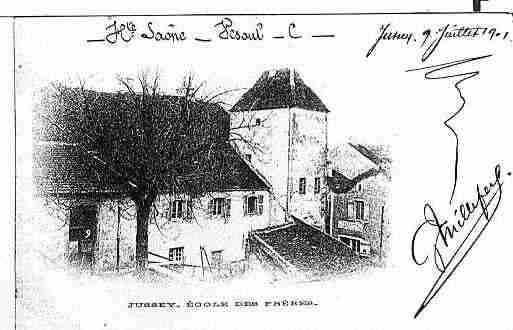 Hte Saône - Vesoul - C -
Jussey. 9 Juillet 1901
JUSSEY. ÉCOLE DES FRÈRES.